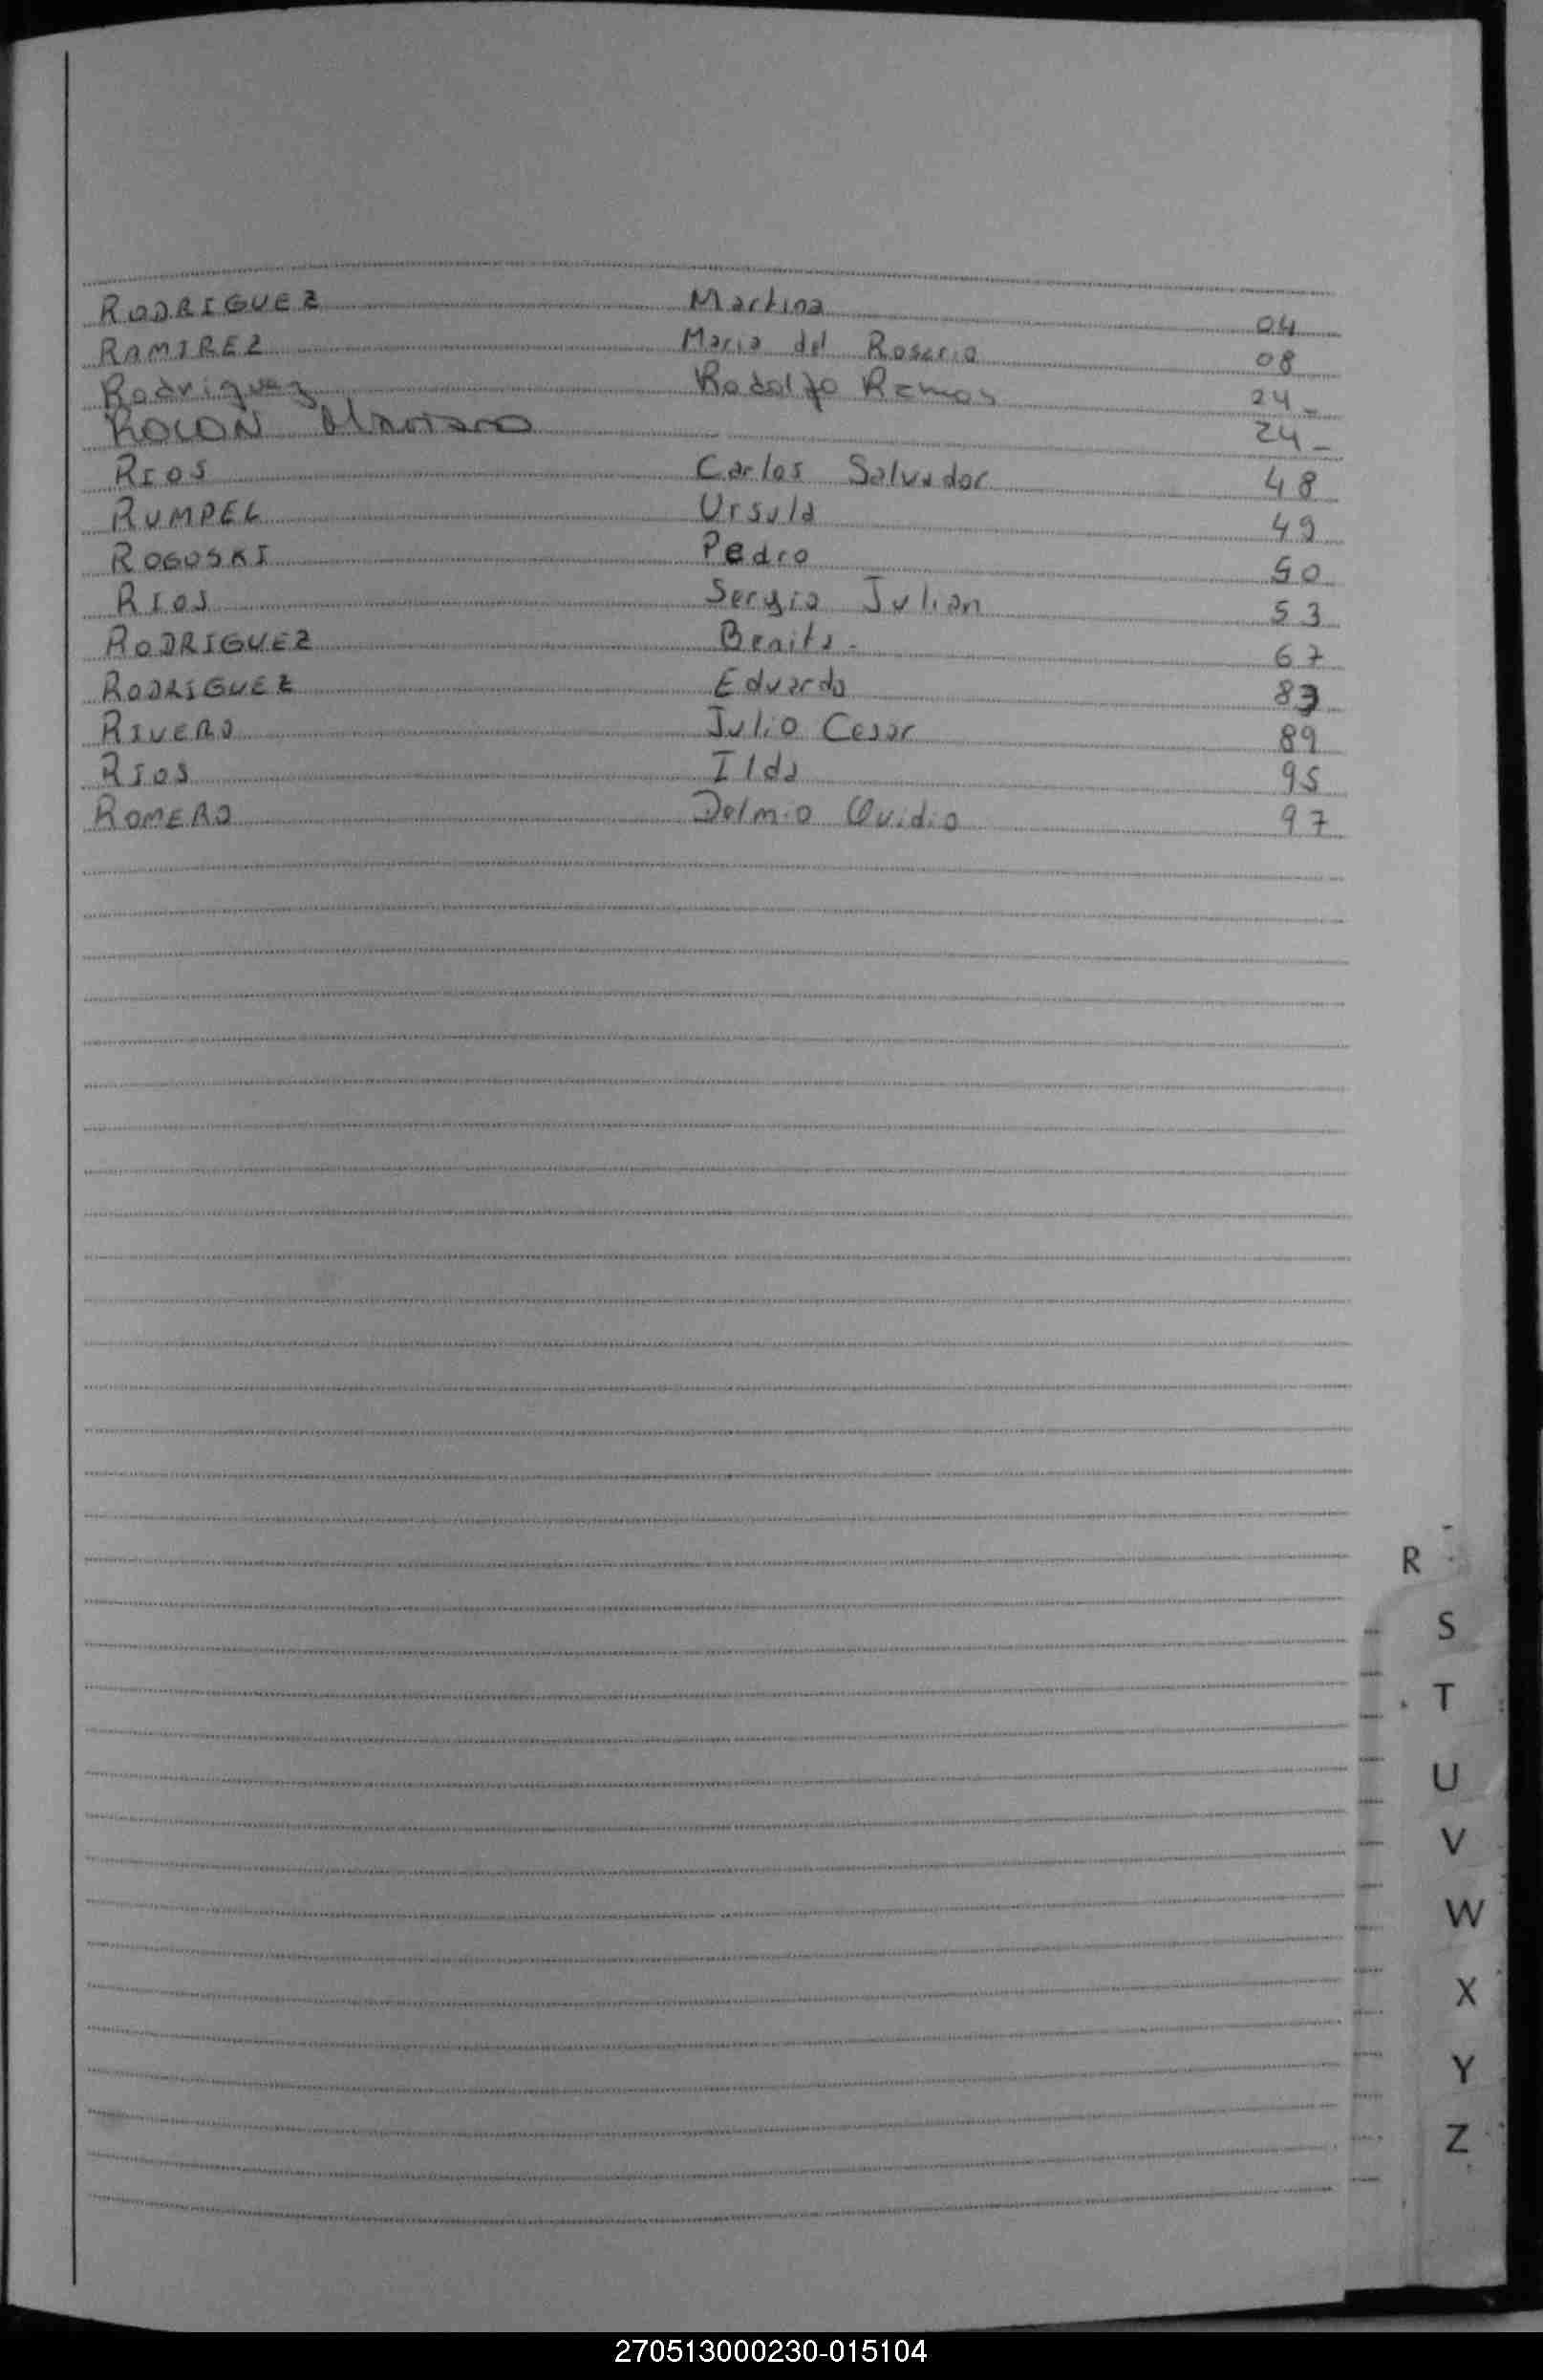 RODRIGUEZ Martina 04
RAMIREZ Maria del Rosario 08
Rodriguez Rodolfo Ramos 24_
ROLON 24_
RIOS Carlos Salvador 48
RUMPEL Ursula 49
ROGOSKI Pedro 50
RIOS Sergio Julian 53
RODRIGUEZ Benita - 67
RODRIGUEZ Eduardo 83
RIVERO Julio Cesar 89
RIOS Ilda 95
ROMERO Delmio Ovidio 97
R
S
T
U
V
W
X
Y
Z
270513000230-015104